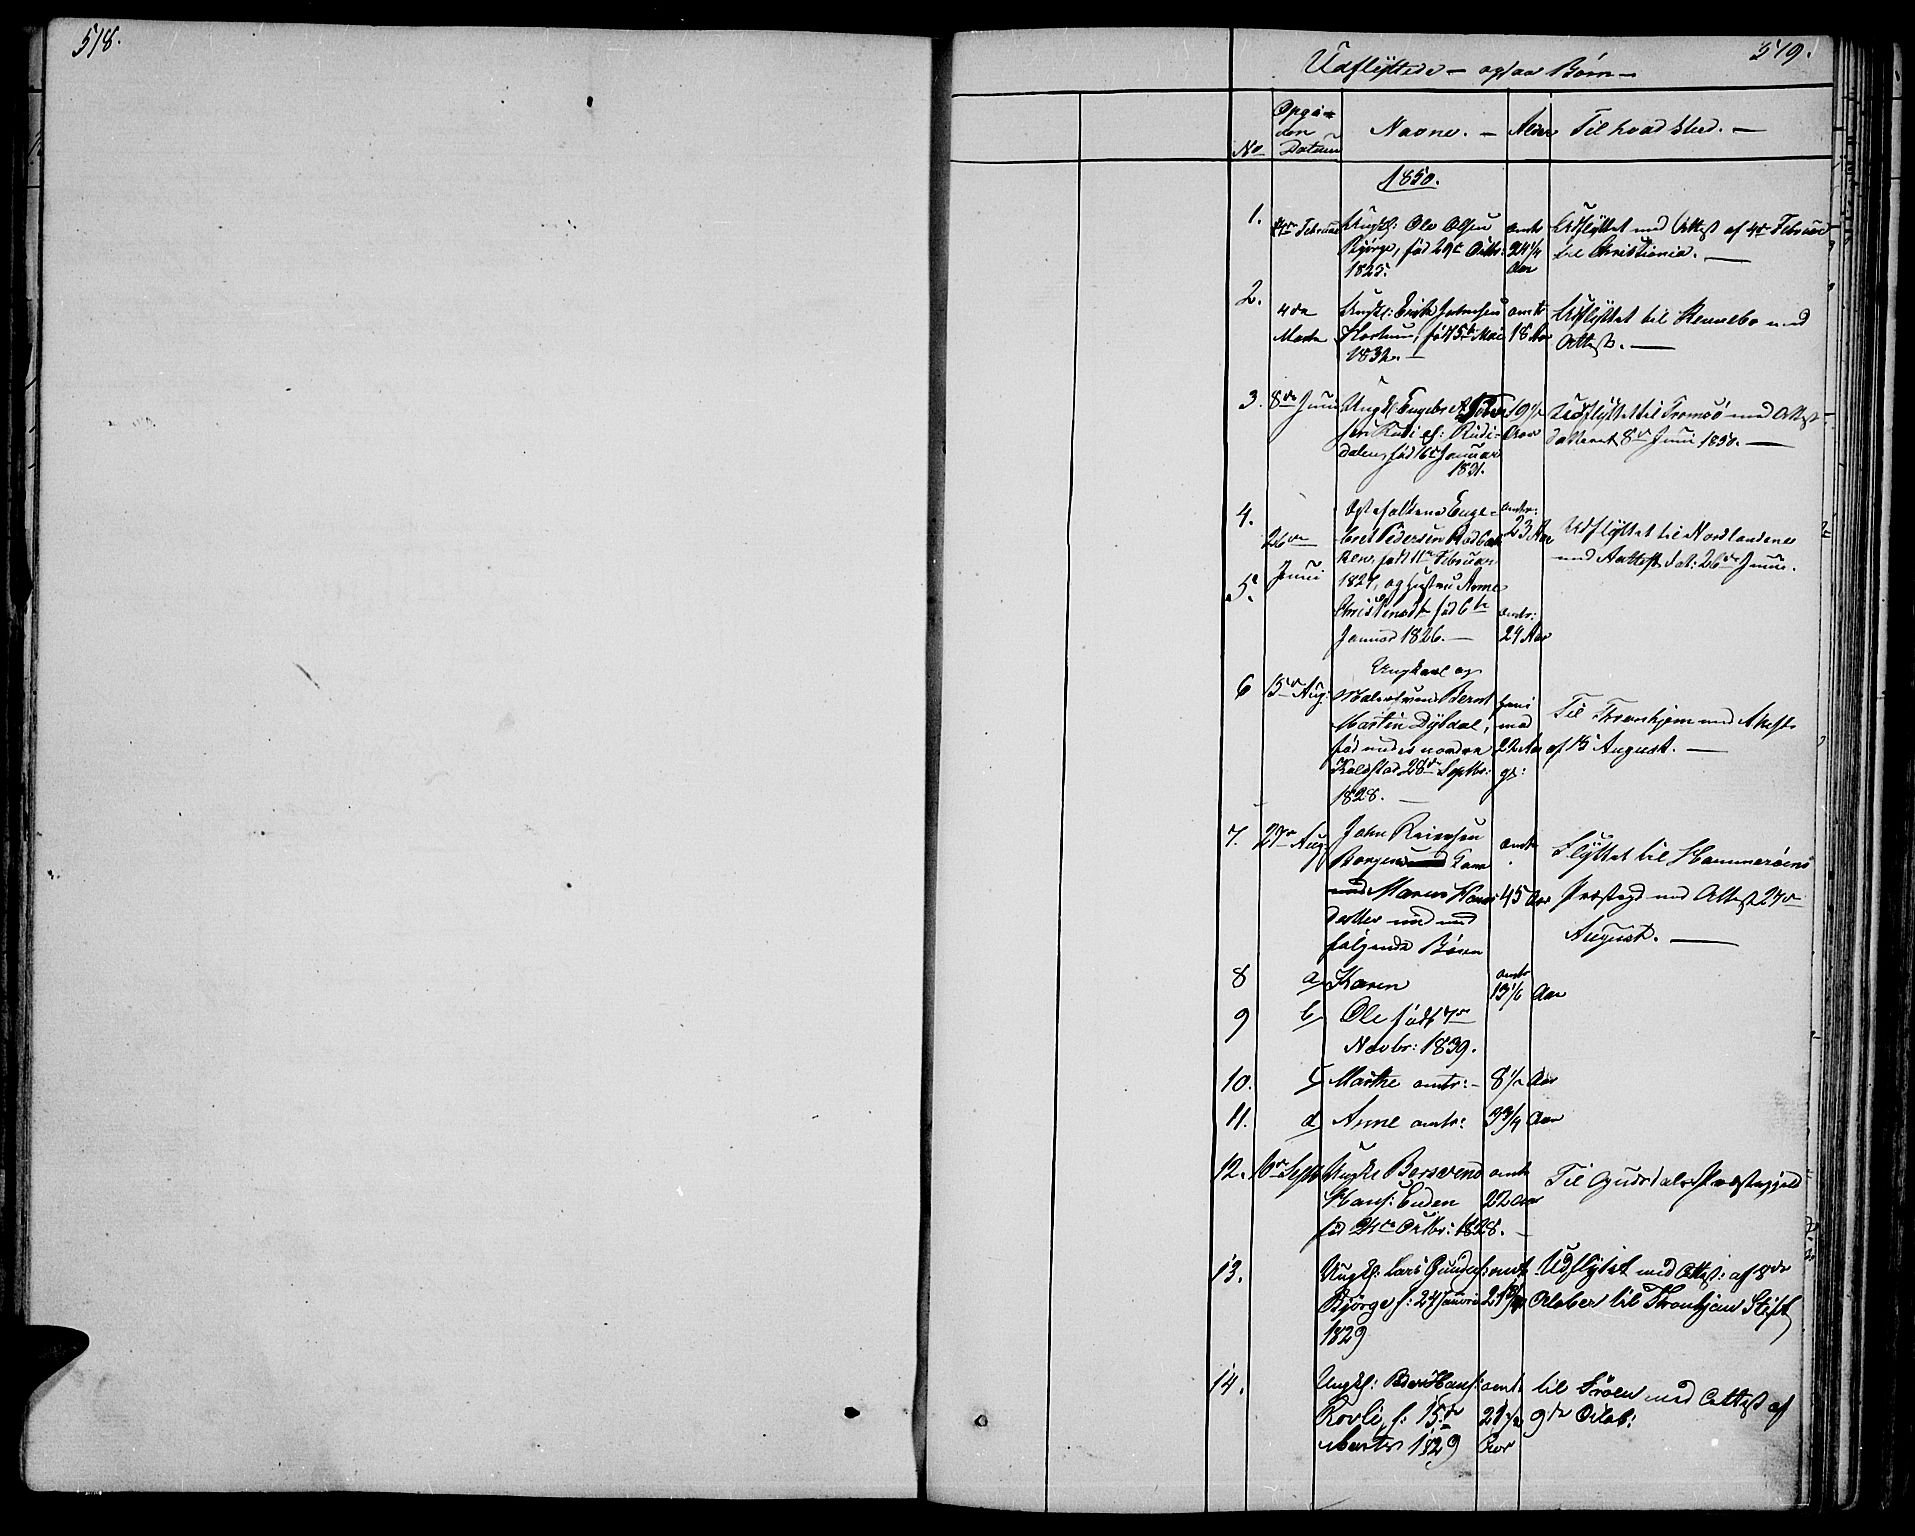 518.
519.
Udflyttede – ogsaa Børn –
No
Opgi-
ven
Datum
Navne. –
Alder
Til hvad Sted. –
1850.
1.
4de Februar
Ungk: Ole Olsen
Bjørge, fød 29de Octbr:
1825.
omtr
24 1/4
Aar
Udflyttet med Attest af 4de Februar
til Christiania. –
2.
4de
Marts
Ungk: Erik
fød 15de Mai
1832. –
omtr
18 Aar
Udflyttet til Rennebo med
Attest. –
3.
8de Juni
Ungk: Engebret
sen Rudi
dalen, fød 16de Januar
1831.
19 1/2
Aar
Udflyttet til Tromsö med Attest
dateret 8de Juni 1850. –
4.
5.
26de
Juni
Ægtefolkene Enge-
bret Pedersen
ken, født 11te Februar
1827, og Hustru Anne
Christensdtr fød 6te
Januar 1826. –
omtr:
23 Aar
omtr:
24 Aar
Udflyttet til Nordlandene
med Attest dat: 26de Juni.
6
15de Aug:
Ungkarl og
Malersvend Bernt
Martin Dybdal,
fød under nordre
Kolstad 28de Septbr:
1828. –
22 Aar
Til Thronhjem med Attest
af 15 August. –
7.
27de Aug:
John Reiersen
Borgen
Maren Hans
datter med
følgende Børn
omtr
45 Aar
Flyttet til Hammerøens
Præstegd med Attest 27de
August. –
8
a
Karen
omtr
13 1/6 Aar
9
b
Ole født 7de
Novbr: 1839.
10.
c
Marthe omtr: –
8 1/2 Aar
11.
d
Anne omtr:
3 3/4 Aar
12.
Septb
Ungk: Berswend
Hans: Enden
fød 24de Octbr: 1828. –
omtr
22 Aar
Til Præstegjeld
13.
Ungk: Lars
Bjørge f: 24 Januar
1829
omtr
Udflyttet med Attest: af 8de
October til Thronhjem Stift
14.
Ungk: Hans:
f: 15de
Marts 1829
omtr
21 1/2
Aar
til med Attest af
9de Octob: